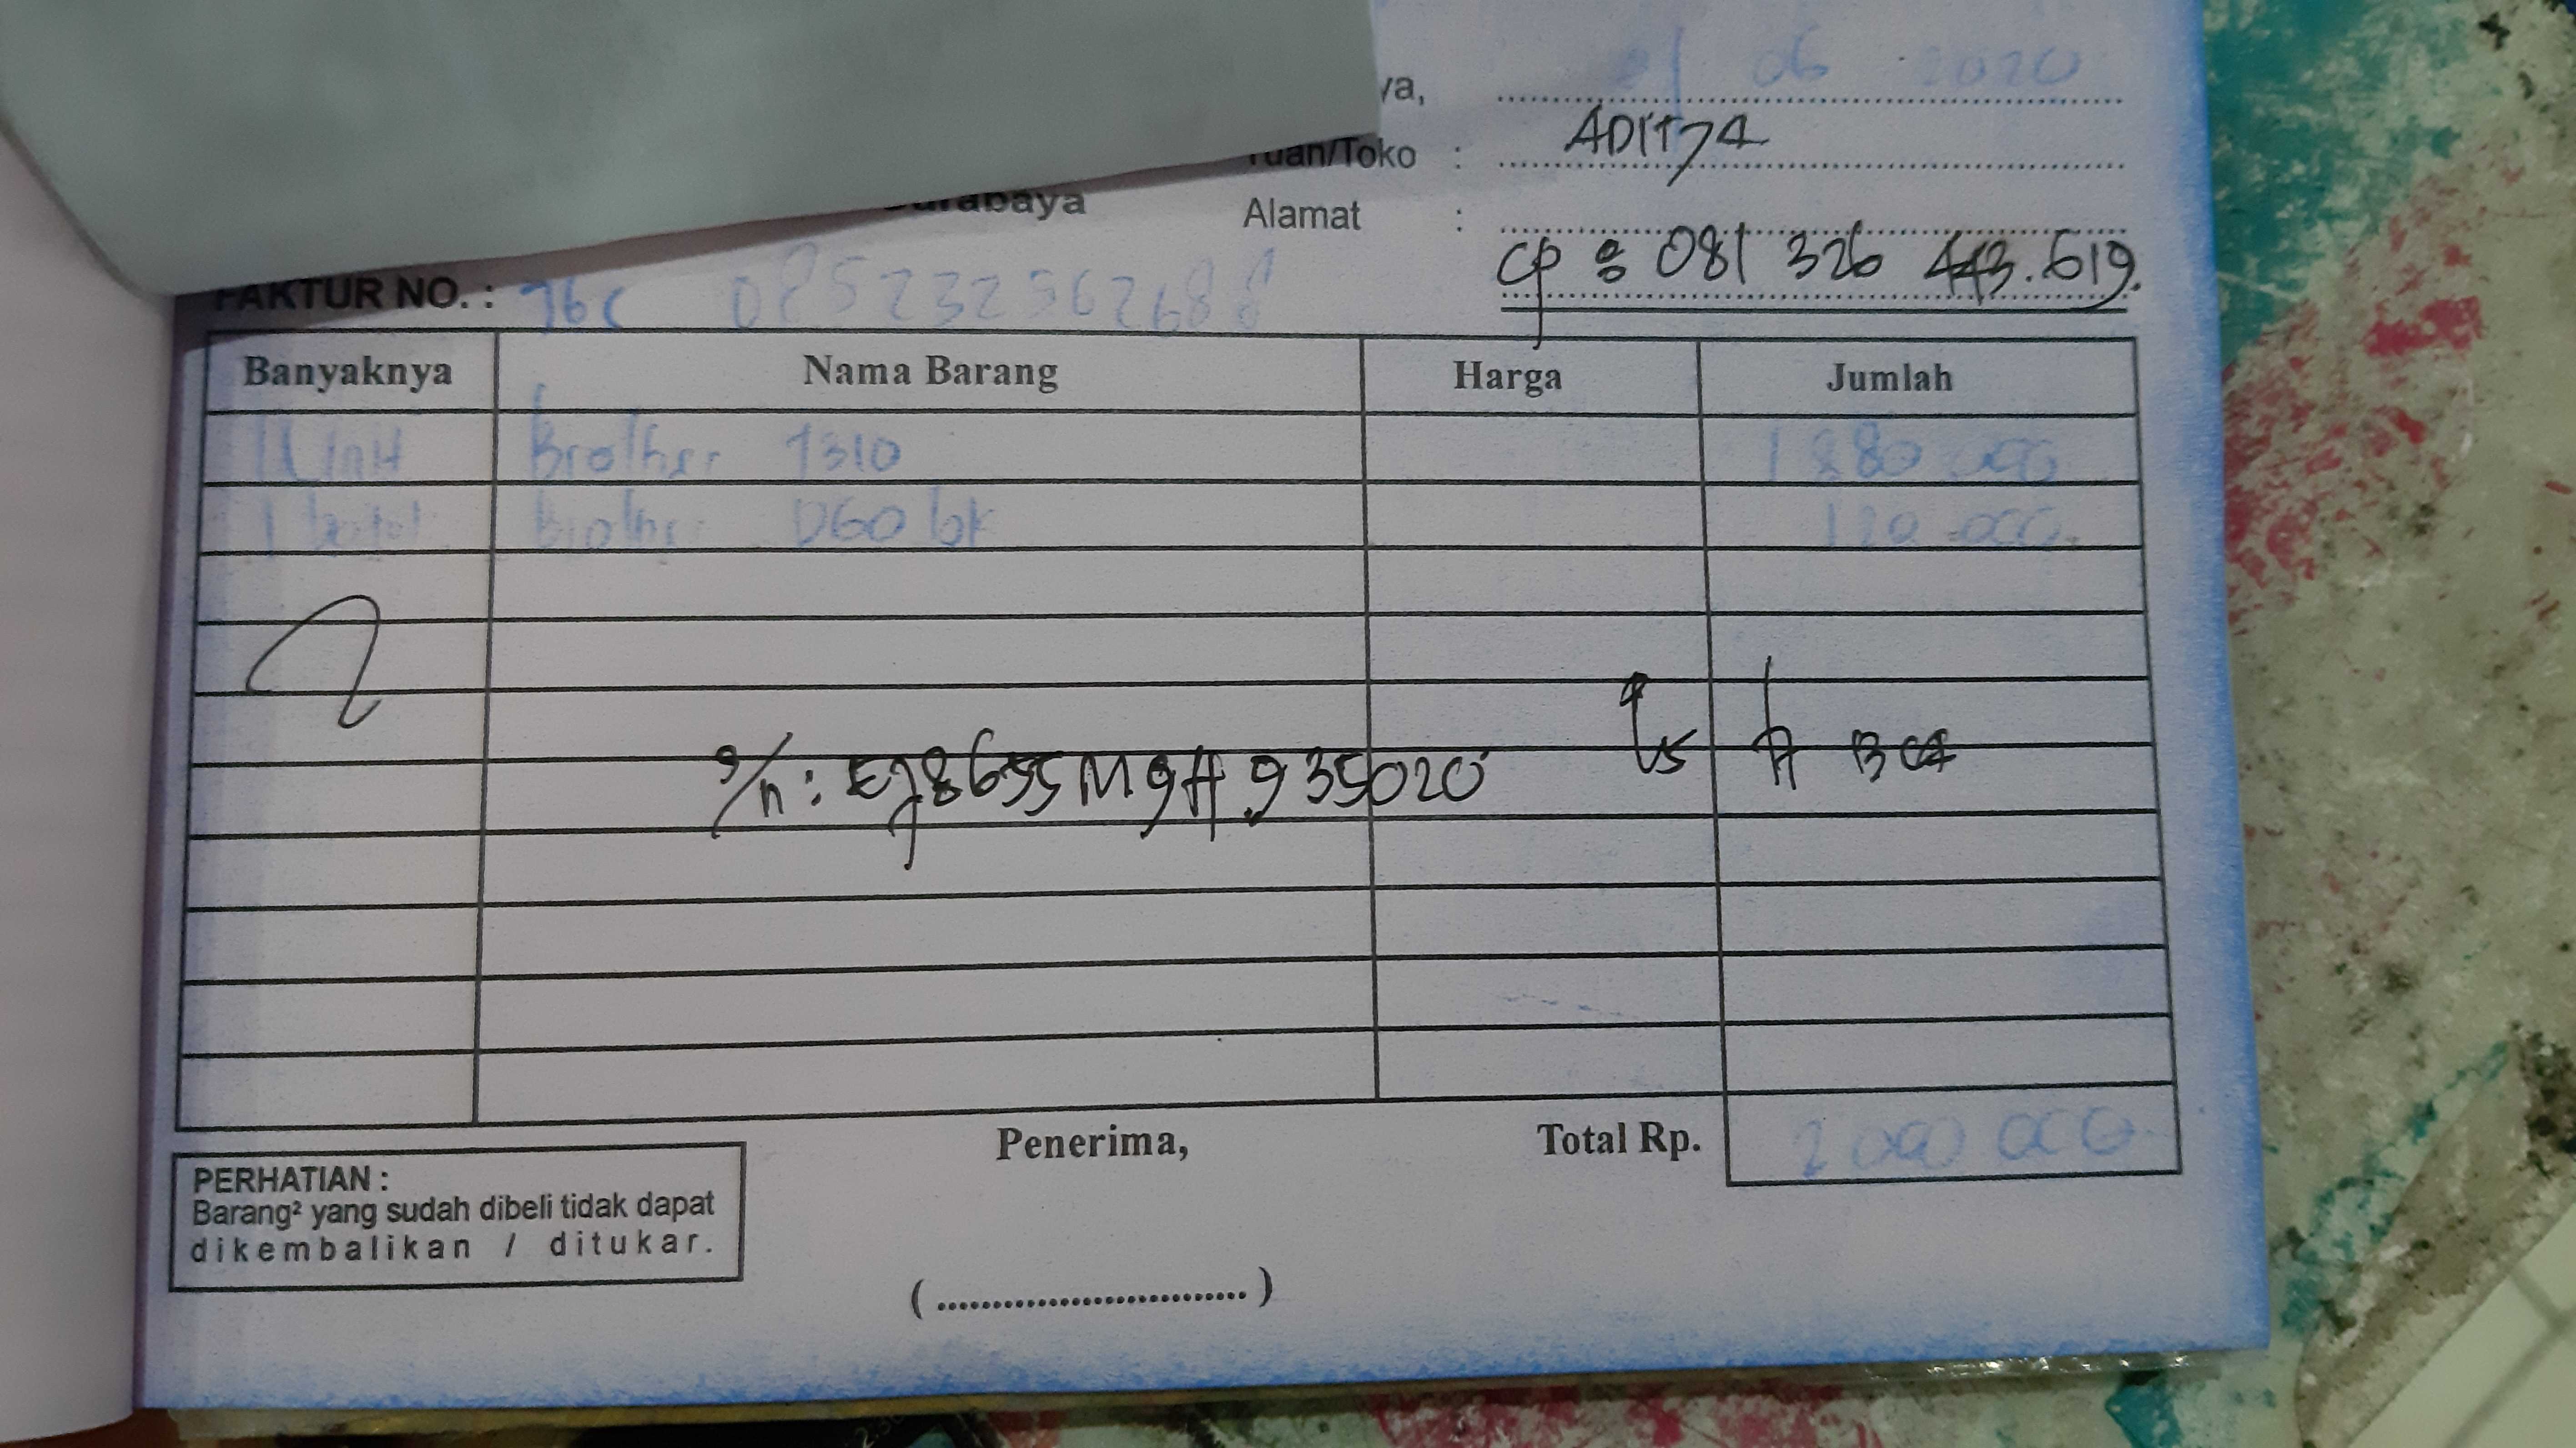 06 2020
Tuan/Toko : ADITYA
Surabaya
Alamat :
CP : 081 326 443.619.
FAKTUR NO. : 085232362688
Banyaknya Nama Barang Harga Jumlah
1 Unit Brother T310 1 880 000
1 botol Brother D60 bk 120 000
Ls A BCA
s/n: E78655M9H935020
Penerima, Total Rp. 2 000 000
PERHATIAN :
Barang² yang sudah dibeli tidak dapat
dikembalikan / ditukar.
(............................)